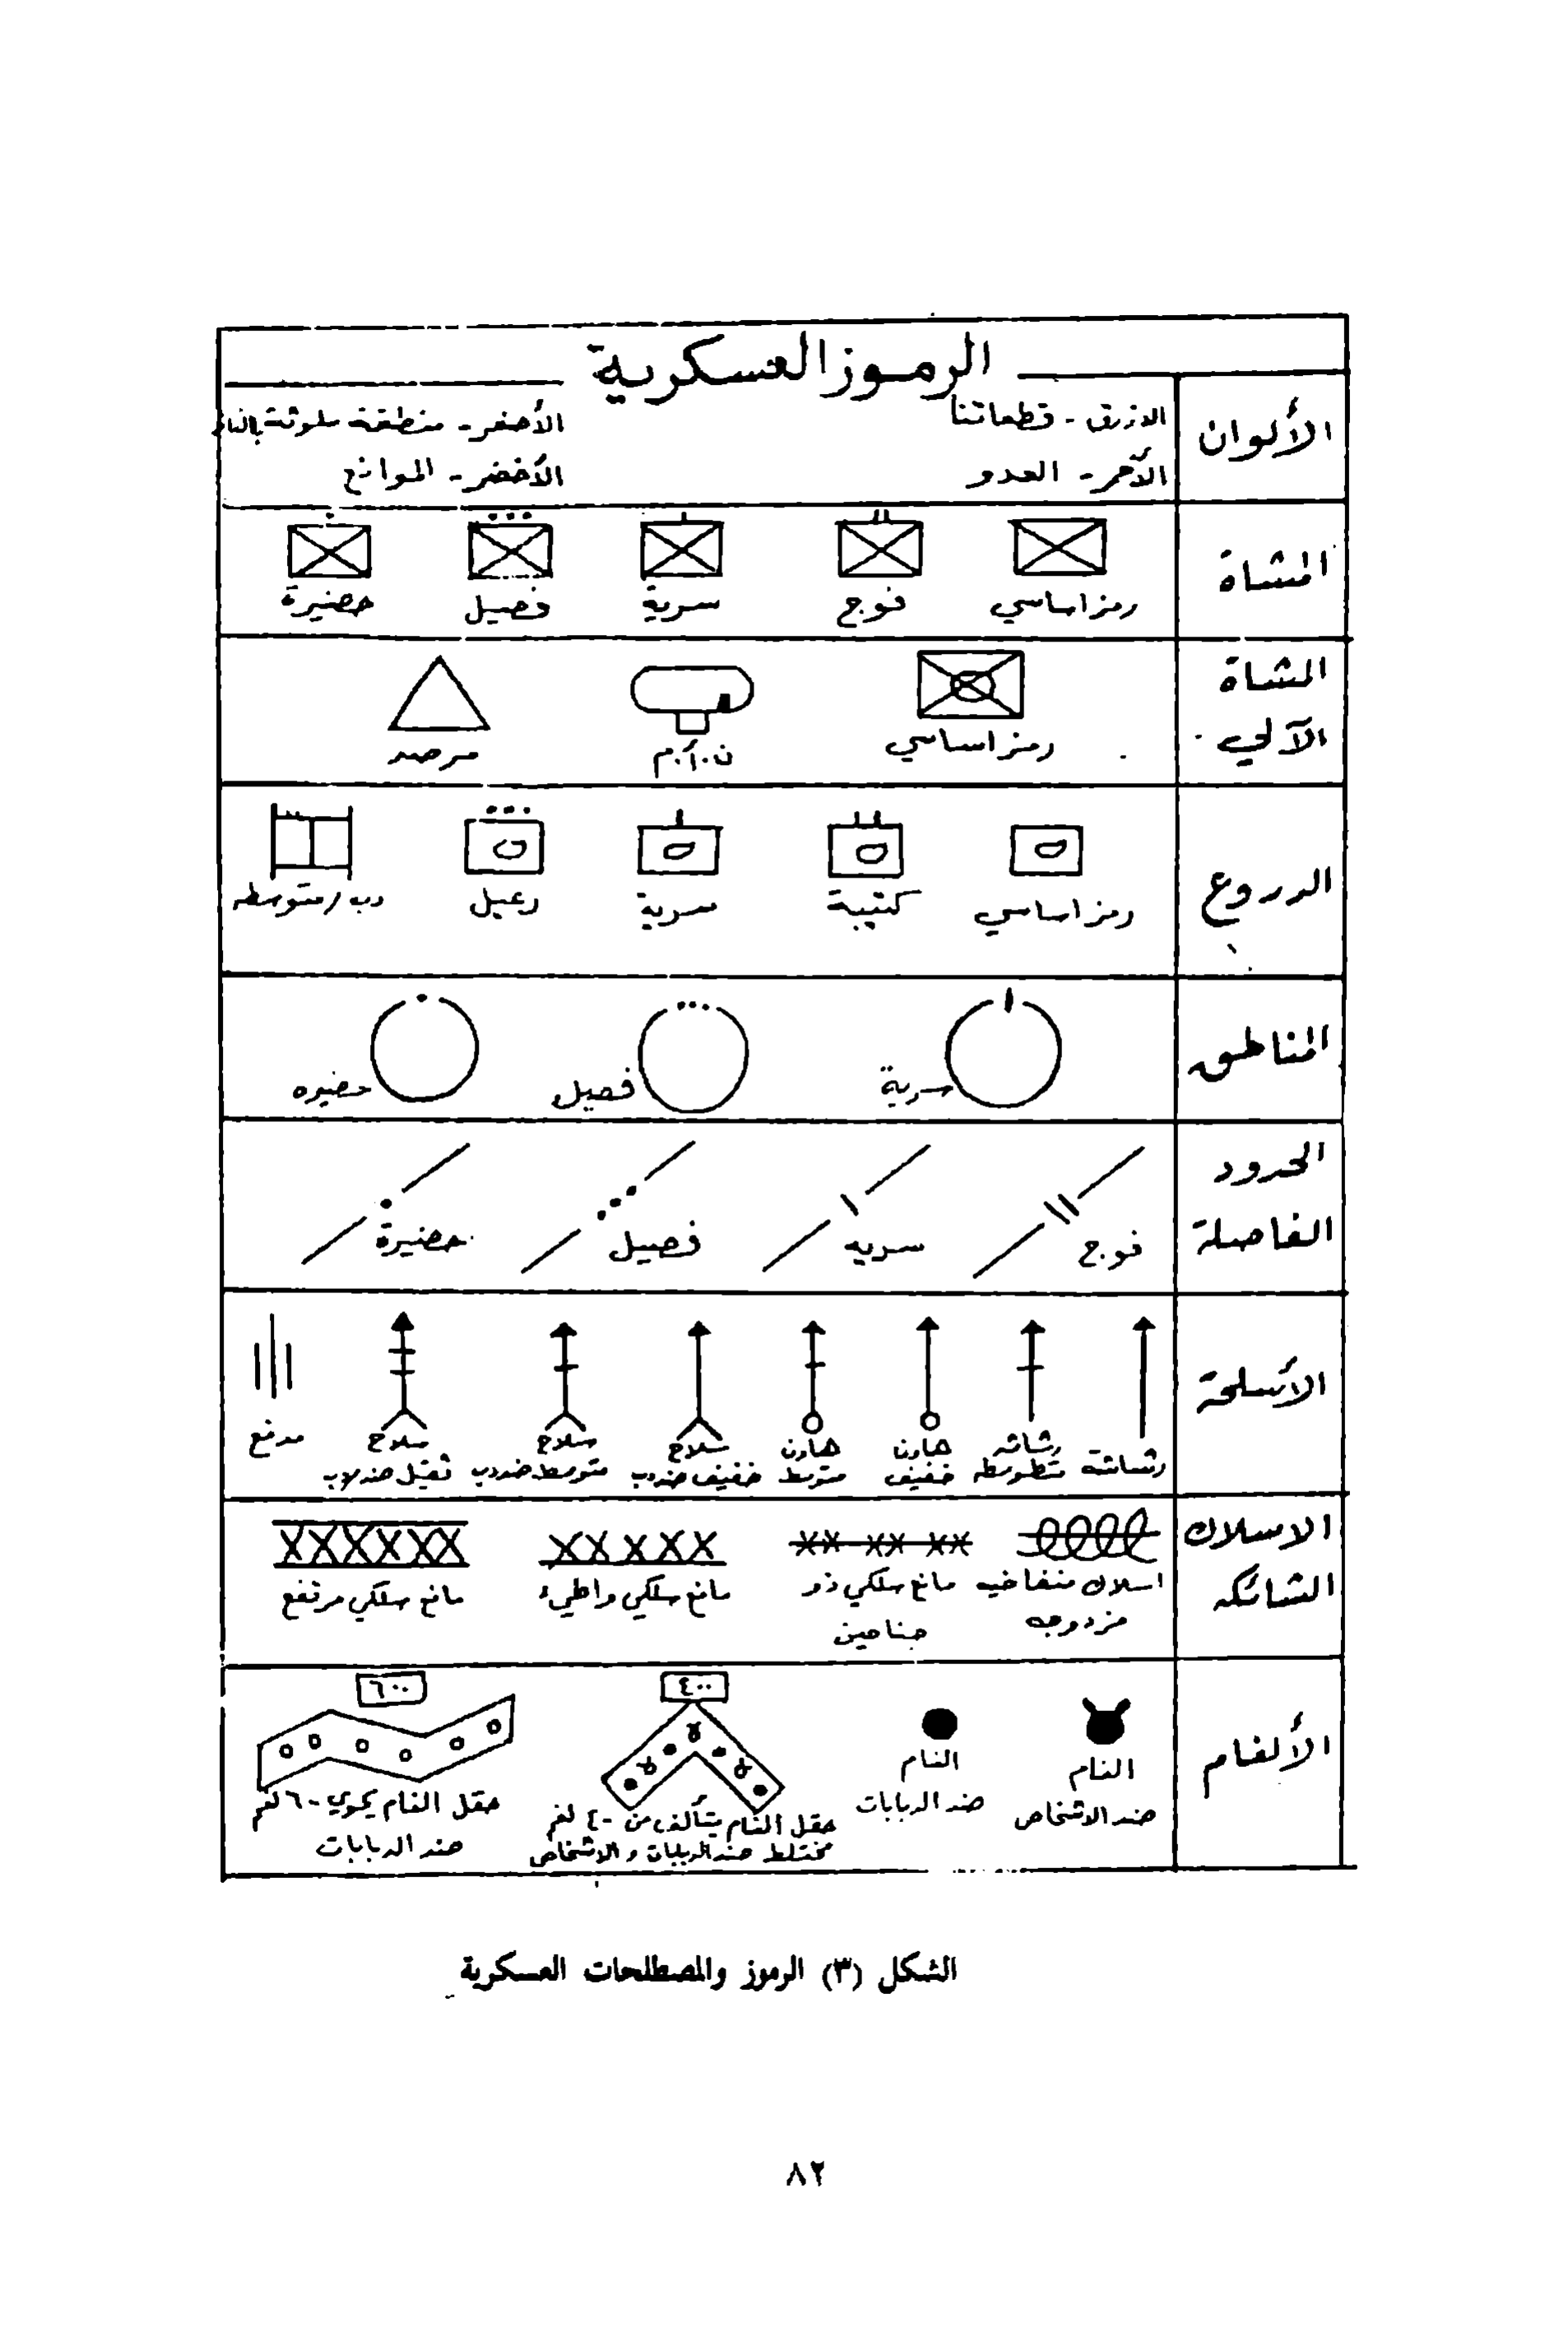 الرموز العسكرية
الألوان
الازرق - قطعاتنا
الأصفر - منطقة ملوثة
الأحمر - العدو
الأخضر - الموانع
المشاة
رمز اساسي
فوج
سرية
فصيل
حضيرة
المشاة
الآلي
رمز اساسي
مرصد
الدروع
رمز اساسي
كتيبة
سرية
رعيل
دب/متوسطه
المناطق
سرية
فصيل
حضيره
الحدود
الفاصلة
فوج
سريه
فصيل
حضيرة
الأسلحة
رشاشة
رشاشه
هاون
خفيف
هاون
متوسط
سلاح
خفيف ضد دب
سلاح
متوسط ضد دب
سلاح
ثقيل
مدفع
الاسلاك
الشائكه
اسلاك منفاخيه
مزدوجه
مانع سلكي ذو
جناحين
مانع سلكي واطيء
مانع سلكي مرتفع
الألغام
الغام
ضد الاشخاص
الغام
ضد الدبابات
٤٠٠
حقل الغام يتألف من ٤٠٠ لغم
مختلط ضد الدبابات والاشخاص
٦٠٠
حقل الغام يحوي ٦٠٠ لغم
ضد الدبابات
الشكل (٣) الرموز والمصطلحات العسكرية
٨٢